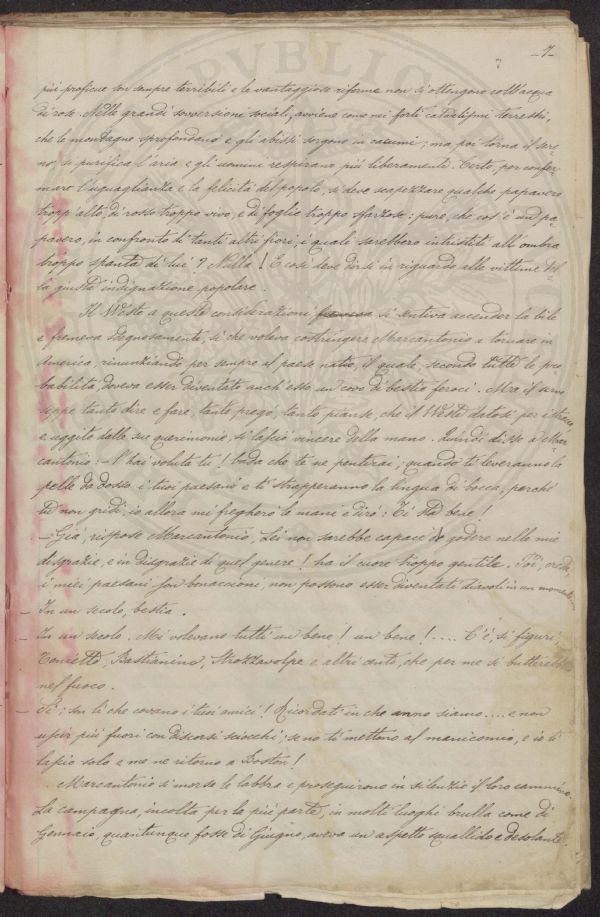 -7-
più proficue son sempre terribili e le vantaggiose riforme non si ottengono coll'acqua
di rose. Nelle grandi sovversioni sociali, avviene come nei forti cataclismi terrestri,
che le montagne sprofondano e gli abissi sorgono in cacumi; ma poi torna il sere-
no, si purifica l'aria e gli uomini respirano più liberamente. Certo, per confer-
mare l'uguaglianza e la felicità del popolo, si deve scapezzare qualche papavero
tropp'alto, di rosso troppo vivo, e di foglie troppo sfarzose: pure, che cos'è un pa-
pavero, in confronto di tanti altri fiori, i quali sarebbero intristiti all'ombra
troppo spanta di lui? Nulla! E così deve dirsi in riguardo alle vittime del-
la giusta indignazione popolare.
Il Weste a queste considerazioni si sentiva accender la bile
e fremeva sdegnosamente, sì che voleva costringere Marcantonio a tornare in
America, rinunziando per sempre al paese natio, il quale, secondo tutte le pro
babilità, doveva esser diventato anch'esso un covo di bestie feroci. Ma il servo
seppe tanto dire e fare, tanto pregò, tanto pianse, che il Weste datosi per istracco
e uggito dalle sue querimonie, si lasciò vincere della mano. Quindi disse a Mar-
cantonio: - l'hai voluta tu! bada che te ne pentirai; quando ti leveranno la
pelle da dosso i tuoi paesani e ti strapperanno la lingua di bocca, perché
tu non gridi, io allora mi fregherò le mani e dirò: Ti sta bene!
- Già, rispose Marcantonio, Lei non sarebbe capace di godere nelle mie
disgrazie, e in disgrazie di quel genere! ha il cuore troppo gentile. Poi, creda,
i miei paesani son bonaccioni, non possono esser diventati diavoli in un momento.
- In un secolo, bestia.
- In un secolo! Mi volevano tutti un bene! un bene!.... C'è, si figuri,
Concetto, Bastianino, Strozzavolpe e altri cento, che per me si butterebbero
nel fuoco.
- Sì; son lì che covano i tuoi amici! Ricordati in che anno siamo.... e non
uscir più fuori con discorsi sciocchi, se no ti mettono al manicomio, e io ti
lascio solo e me ne ritorno a Boston!
Marcantonio si morse le labbra e proseguirono in silenzio il loro cammino.
La campagna, incolta per la più parte, in molti luoghi brulla come di
Gennaio, quantunque fosse di Giugno, aveva un aspetto squallido e desolante.